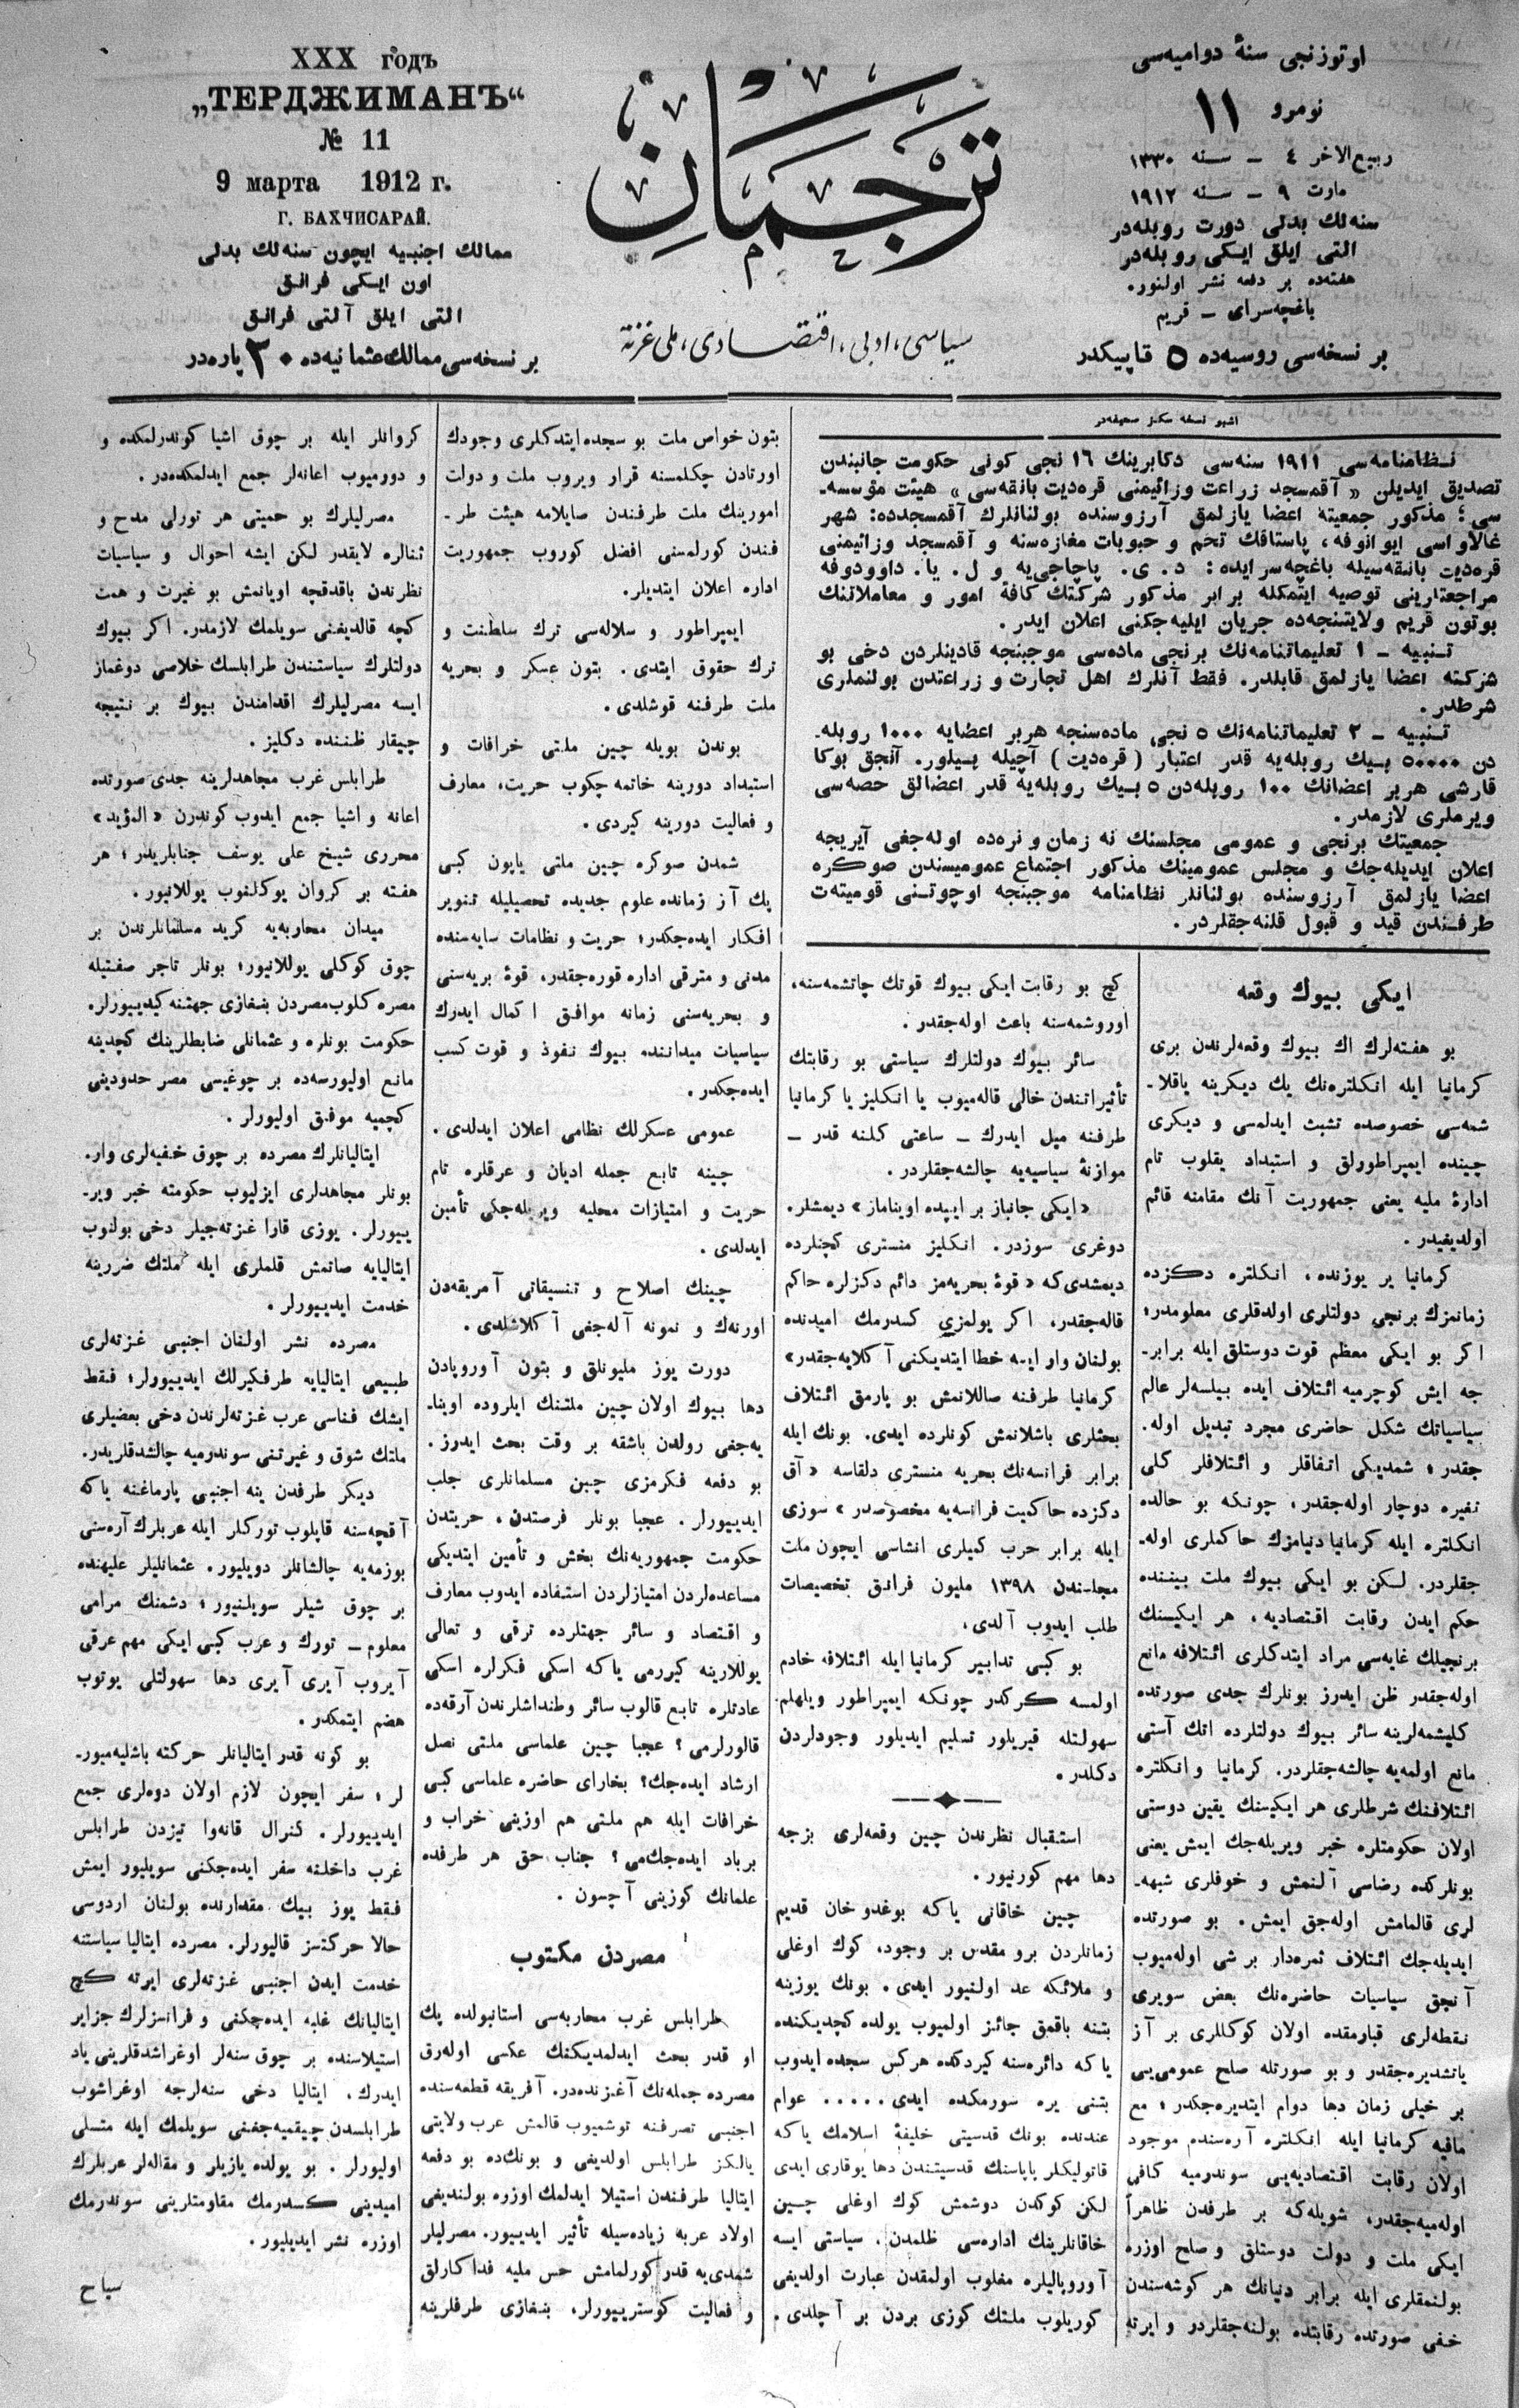 XXX годъ
„ТЕРДЖИМАНЪ“
№ 11
9 марта 1912 г.
Г. БАХЧИСАРАЙ.
ممالك اجنبیه ایچون سنه‌لك بدلی
اون ایكی فرانق
التی ایلق آلتی فرانق
بر نسخه‌سی ممالك عثمانیه‌ده ٣٠ پاره‌در
ترجمان
سیاسی، ادبی، اقتصادی، ملی غزته
اوتوزنجی سنهٔ دوامیه‌سی
نومرو ١١
ربیع‌الاخر ٤ – سنه ١٣٣٠
مارت ٩ – سنه ١٩١٢
سنه‌لك بدلی دورت روبله‌در
التی ایلق ایكی روبله‌در
هفته‌ده بر دفعه نشر اولنور.
باغچه‌سرای – قریم
بر نسخه‌سی روسیه‌ده ٥ قاپیكدر
اشبو نسخه سكز صحیفه‌در
نظامنامه‌سی ١٩١١ سنه‌سی دكابرینك ١٦ نجی كونی حكومت جانبندن
تصدیق ایدیلن «آقمسجد زراعت وزائیمنی قره‌دیت بانقه‌سی» هیئت مؤسسه‌ـ
سی؛ مذكور جمعیته اعضا یازلمق آرزوسنده بولنانلرك آقمسجدده: شهر
غالاواسی ایوانوفه، پاستاقك تخم و حبوبات مغازه‌سنه و آقمسجد وزائیمنی
قره‌دیت بانقه‌سیله باغچه‌سرایده: د. ی. پاچاجی‌یه و ل. یا. داوودوفه
مراجعتلرینی توصیه ایتمكله برابر مذكور شركتك كافهٔ امور و معاملاتنك
بوتون قریم ولایتنجه‌ده جریان ایلیه‌جكنی اعلان ایدر.
تنبیه – ١ تعلیماتنامه‌نك برنجی ماده‌سی موجبنجه قادینلردن دخی بو
شركته اعضا یازلمق قابلدر. فقط آنلرك اهل تجارت و زراعتدن بولنملری
شرطدر.
تنبیه – ٢ تعلیماتنامه‌نك ٥ نجی ماده‌سنجه هربر اعضایه ١٠٠٠ روبله‌ـ
دن ٥٠٠٠٠ بیك روبله‌یه قدر اعتبار (قره‌دیت) آچیله بیلور. آنجق بوكا
قارشی هربر اعضانك ١٠٠ روبله‌دن ٥ بیك روبله‌یه قدر اعضالق حصه‌سی
ویرملری لازمدر.
جمعیتك برنجی و عمومی مجلسنك نه زمان و نره‌ده اوله‌جغی آیریجه
اعلان ایدیله‌جك و مجلس عمومینك مذكور اجتماع عمومیسندن صوكره
اعضا یازلمق آرزوسنده بولنانلر نظامنامه موجبنجه اوچوتنی قومیته‌ت
طرفندن قید و قبول قلنه‌جقلردر.
ایكی بیوك وقعه
بو هفته‌لرك اك بیوك وقعه‌لرندن بری
كرمانیا ایله انكلتره‌نك یك دیكرینه یاقلاـ
شمه‌سی خصوصده تشبث ایدلمسی و دیكری
چینده ایمپراطورلق و استبداد یقلوب تام
ادارهٔ ملیه یعنی جمهوریت آنك مقامنه قائم
اولدیغیدر.
كرمانیا یر یوزنده، انكلتره دكزده
زمانمزك برنجی دولتلری اولدقلری معلومدر؛
اكر بو ایكی معظم قوت دوستلق ایله برابرـ
جه ایش كوچرمیه ائتلاف ایده بیلسه‌لر عالم
سیاسیاتك شكل حاضری مجرد تبدیل اوله.
جقدر؛ شمدیكی اتفاقلر و ائتلافلر كلی
تغیره دوچار اوله‌جقدر، چونكه بو حالده
انكلتره ایله كرمانیا دنیامزك حاكملری اوله‌ـ
جقلردر. لكن بو ایكی بیوك ملت بیننده
حكم ایدن رقابت اقتصادیه، هر ایكیسنك
برنجیلك غایه‌سی مراد ایتدكلری ائتلافه مانع
اوله‌جقدر ظن ایدرز بونلرك جدی صورتده
كلیشمه‌لرینه سائر بیوك دولتلرده اتك آستی
مانع اولمه‌یه چالشه‌جقلردر. كرمانیا و انكلتره
ائتلافنك شرطلری هر ایكیسنك یقین دوستی
اولان حكومتلره خبر ویریله‌جك ایمش یعنی
بونلركده رضاسی آلنمش و خوفلری شبهه‌ـ
لری قالمامش اوله‌جق ایمش. بو صورتده
ایدیله‌جك ائتلاف ثمره‌دار بر شی اوله‌میوب
آنجق سیاسیات حاضره‌نك بعض سویری
نقطه‌لری قبارمقده اولان كوكللری بر آز
یاتشدیره‌جقدر و بو صورتله صلح عمومی‌یی
بر خیلی زمان دها دوام ایتدیره‌جكدر؛ مع
مافیه كرمانیا ایله انكلتره آره‌سنده موجود
اولان رقابت اقتصادیه‌یی سوندرمیه كافی
اوله‌میه‌جقدر، شویله‌كه بر طرفدن ظاهراً
ایكی ملت و دولت دوستلق و صلح اوزره
بولنمقلری ایله برابر دنیانك هر كوشه‌سندن
خفی صورتده رقابتده بولنه‌جقلردر و ایرته
كچ بو رقابت ایكی بیوك قوتك چاتشمه‌سنه،
اوروشمه‌سنه باعث اوله‌جقدر.
سائر بیوك دولتلرك سیاستی بو رقابتك
تأثیراتندن خالی قاله‌میوب یا انكلیز یا كرمانیا
طرفنه میل ایدرك – ساعتی كلنه قدر –
موازنهٔ سیاسیه‌یه چالشه‌جقلردر.
«ایكی جانباز بر ایپده اویناماز» دیمشلر.
دوغری سوزدر. انكلیز منستری كچنلرده
دیمشدی‌كه «قوهٔ بحریه‌مز دائم دكزلره حاكم
قاله‌جقدر، اكر یولمزی كسدرمك امیدنده
بولنان وار ایسه خطا ایتدیكنی آكلایه‌جقدر»
كرمانیا طرفنه صاللانمش بو پارمق ائتلاف
بحثلری باشلانمش كونلرده ایدی. بونك ایله
برابر فرانسه‌نك بحریه منستری دلقاسه «آق
دكزده حاكمیت فرانسه‌یه مخصوصدر» سوزی
ایله برابر حرب كمیلری انشاسی ایچون ملت
مجلسندن ١٣٩٨ ملیون فرانق تخصیصات
طلب ایدوب آلدی.
بو كبی تدابیر كرمانیا ایله ائتلافه خادم
اولمسه كركدر چونكه ایمپراطور ویلهلم
سهولتله قیریلور تسلیم ایدیلور وجودلردن
دكلدر.
استقبال نظرندن چین وقعه‌لری بزجه
دها مهم كورنیور.
چین خاقانی یاكه بوغدو خان قدیم
زمانلردن برو مقدس بر وجود، كوك اوغلی
و ملائكه عد اولنیور ایدی. بونك یوزینه
بتنه باقمق جائز اولمیوب یولده كچدیكنده
یاكه دائره‌سنه كیردكده هركس سجده ایدوب
بتنی یره سورمكده ایدی..... عوام
عندنده بونك قدسیتی خلیفهٔ اسلامك یاكه
قاتولیكلر پاپاسنك قدسیتندن دها یوقاری ایدی
لكن كوكدن دوشمش كوك اوغلی چین
خاقانلرینك اداره‌سی ظلمدن، سیاستی ایسه
آوروپالیلره مغلوب اولمقدن عبارت اولدیغی
كوریلوب ملتك كوزی بردن بر آچلدی.
بتون خواص ملت بو سجده ایتدكلری وجودك
اورتادن چكلمسنه قرار ویروب ملت و دولت
امورینك ملت طرفندن صایلامه هیئت طرـ
فندن كورلمسنی افضل كوروب جمهوریت
اداره اعلان ایتدیلر.
ایمپراطور و سلاله‌سی ترك سلطنت و
ترك حقوق ایتدی. بتون عسكر و بحریه
ملت طرفنه قوشلدی.
بوندن بویله چین ملتی خرافات و
استبداد دورینه خاتمه چكوب حریت، معارف
و فعالیت دورینه كیردی.
شمدن صوكره چین ملتی یاپون كبی
پك آز زمانده علوم جدیده تحصیلیله تنویر
افكار ایده‌جكدر؛ حریت و نظامات سایه‌سنده
مدنی و مترقی اداره قوره‌جقدر، قوهٔ بریه‌سنی
و بحریه‌سنی زمانه موافق اكمال ایدرك
سیاسیات میداننده بیوك نفوذ و قوت كسب
ایده‌جكدر.
عمومی عسكرلك نظامی اعلان ایدلدی.
چینه تابع جمله ادیان و عرقلره تام
حریت و امتیازات محلیه ویریله‌جكی تأمین
ایدلدی.
چینك اصلاح و تنسیقاتی آمریقه‌دن
اورنه‌ك و نمونه آله‌جغی آكلاشلدی.
دورت یوز ملیونلق و بتون آوروپادن
دها بیوك اولان چین ملتنك ایلروده اویناـ
یه‌جغی رولدن باشقه بر وقت بحث ایدرز.
بو دفعه فكرمزی چین مسلمانلری جلب
ایدییورلر. عجبا بونلر فرصتدن، حریتدن
حكومت جمهوریه‌نك بخش و تأمین ایتدیكی
مساعده‌لردن امتیازلردن استفاده ایدوب معارف
و اقتصاد و سائر جهتلرده ترقی و تعالی
یوللارینه كیررمی یاكه اسكی فكرلره اسكی
عادتلره تابع قالوب سائر وطنداشلرندن آرقه‌ده
قالورلرمی؟ عجبا چین علماسی ملتی نصل
ارشاد ایده‌جك؟ بخارای حاضره علماسی كبی
خرافات ایله هم ملتی هم اوزینی خراب و
برباد ایده‌جك‌می؟ جناب حق هر طرفده
علمانك كوزینی آچسون.
مصردن مكتوب
طرابلس غرب محاربه‌سی استانبولده پك
او قدر بحث ایدلمدیكنك عكسی اوله‌رق
مصرده جمله‌نك آغزنده‌در. آفریقه قطعه‌سنده
اجنبی تصرفنه توشمیوب قالمش عرب ولایتی
یالكز طرابلس اولدیغی و بونك‌ده بو دفعه
ایتالیا طرفندن استیلا ایدلمك اوزره بولندیغی
اولاد عربه زیاده‌سیله تأثیر ایدییور. مصرلیلر
شمدی‌یه قدر كورلمامش حس ملیه فداكارلق
و فعالیت كوستریپورلر، بنغازی طرفلرینه
كروانلر ایله بر چوق اشیا كوندرلمكده و
و دوومیوب اعانه‌لر جمع ایدلمكده‌در.
مصرلیلرك بو حمیتی هر تورلی مدح و
ثنالره لایقدر لكن ایشه احوال و سیاسیات
نظرندن باقدقچه اویانمش بو غیرت و همت
كچه قالدیغنی سویلمك لازمدر. اكر بیوك
دولتلرك سیاستندن طرابلسك خلاصی دوغماز
ایسه مصرلیلرك اقدامندن بیوك بر نتیجه
چیقار ظننده دكلیز.
طرابلس غرب مجاهدلرینه جدی صورتده
اعانه و اشیا جمع ایدوب كوندرن «المؤید»
محرری شیخ علی یوسف جنابلریدر؛ هر
هفته بر كروان یوكلنوب یوللانیور.
میدان محاربه‌یه كرید مسلمانلرندن بر
چوق كوكلی یوللانیور؛ بونلر تاجر صفتیله
مصره كلوب مصردن بنغازی جهتنه كیدییورلر.
حكومت بونلره و عثمانلی ضابطلرینك كچدیشه
مانع اولیورسه‌ده بر چوغیسی مصر حدودینی
كچمیه موفق اولیورلر.
ایتالیانلرك مصرده بر چوق خفیه‌لری وار.
بونلر مجاهدلری ایزلیوب حكومته خبر ویرـ
ییورلر. یوزی قارا غزته‌جیلر دخی بولنوب
ایتالیایه صاتمش قلملری ایله ملتك ضررینه
خدمت ایدییورلر.
مصرده نشر اولنان اجنبی غزته‌لری
طبیعی ایتالیایه طرفكیرلك ایدییورلر؛ فقط
ایشك فناسی عرب غزته‌لرندن دخی بعضیلری
ملتك شوق و غیرتنی سوندرمیه چالشدقلریدر.
دیكر طرفدن ینه اجنبی پارماغنه یاكه
آقچه‌سنه قاپلوب توركلر ایله عربلرك آره‌سنی
بوزمه‌یه چالشانلر دویلیور. عثمانلیلر علیهنده
بر چوق شیلر سویلنیور؛ دشمنك مرامی
معلوم – تورك و عرب كبی ایكی مهم عرقی
آیروب آیری آیری دها سهولتلی یوتوب
هضم ایتمكدر.
بو كونه قدر ایتالیانلر حركته باشلیه‌میورـ
لر؛ سفر ایچون لازم اولان دوه‌لری جمع
ایدییورلر. كنرال قانه‌وا تیزدن طرابلس
غرب داخلنه سفر ایده‌جكنی سویلیور ایمش
فقط یوز بیك مقدارنده بولنان اردوسی
حالا حركتسز قالیورلر. مصرده ایتالیا سیاستنه
خدمت ایدن اجنبی غزته‌لری ایرته كچ
ایتالیانك غلبه ایده‌جكنی و فرانسزلرك جزایر
استیلاسنده بر چوق سنه‌لر اوغراشدقلرینی یاد
ایدرك، ایتالیا دخی سنه‌لرجه اوغراشوب
طرابلسدن چیقمیه‌جغنی سویلمك ایله متسلی
اولیورلر. بو یولده یازیلر و مقاله‌لر عربلرك
امیدینی كسدرمك مقاومتلرینی سوندرمك
اوزره نشر ایدیلیور.
سیاح